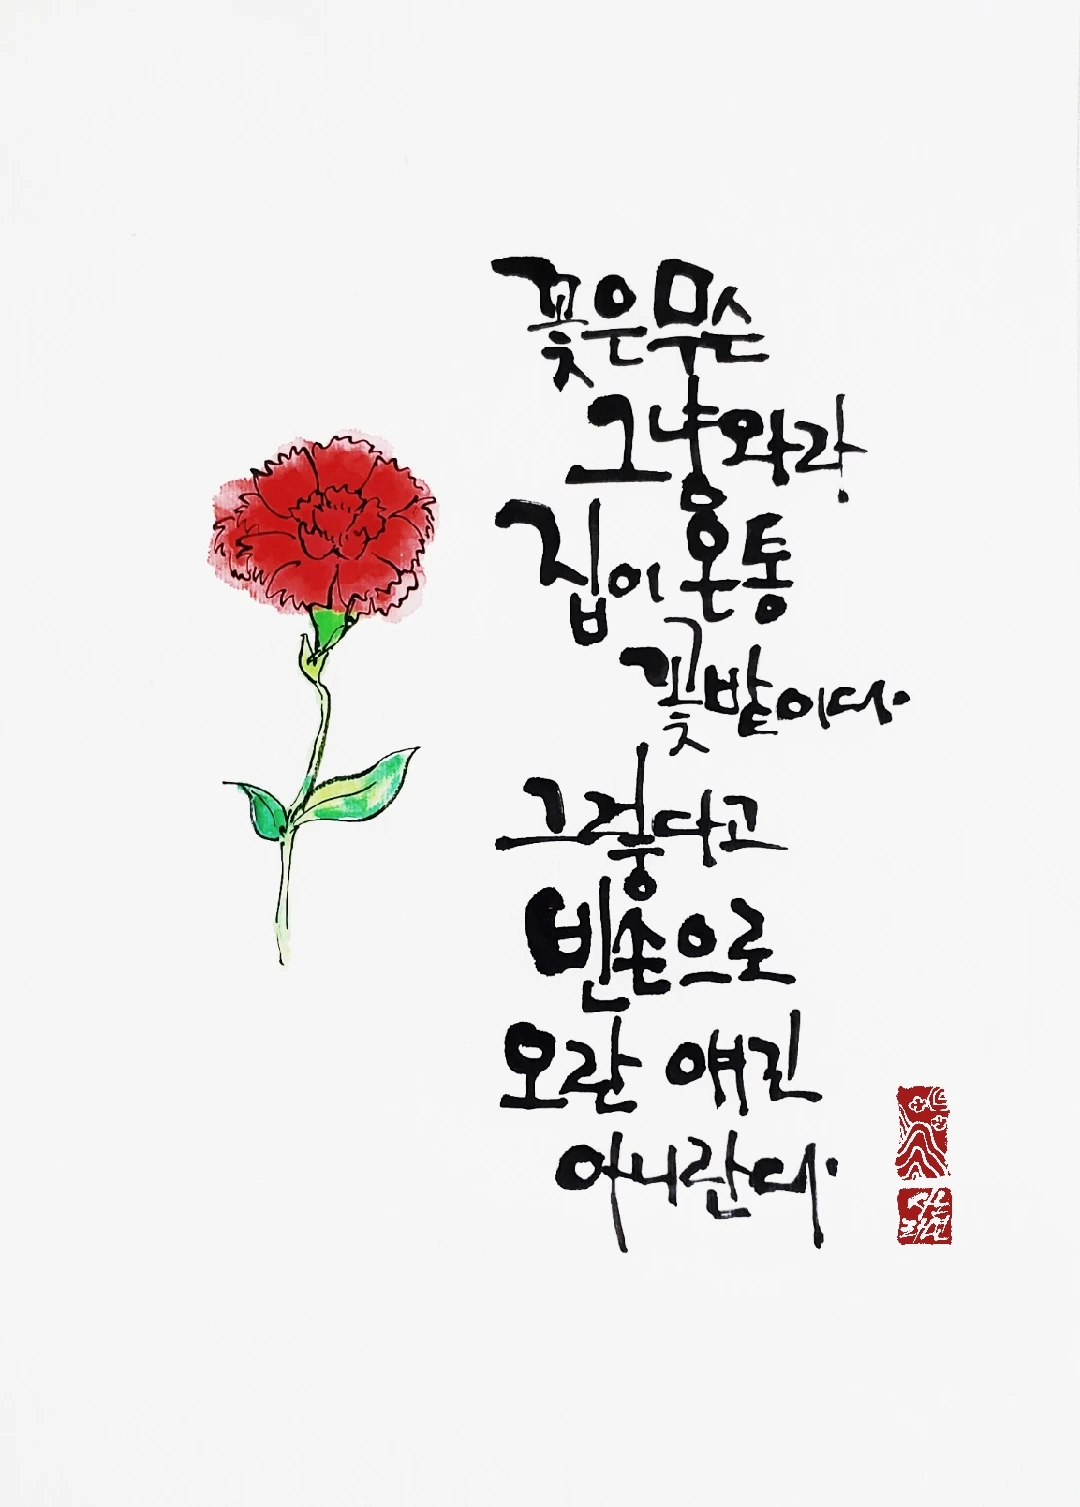 꽃은 무슨
그냥 와라
집이 온통
꽃밭이다.
그렇다고
빈손으로
오란 얘긴
아니란다.